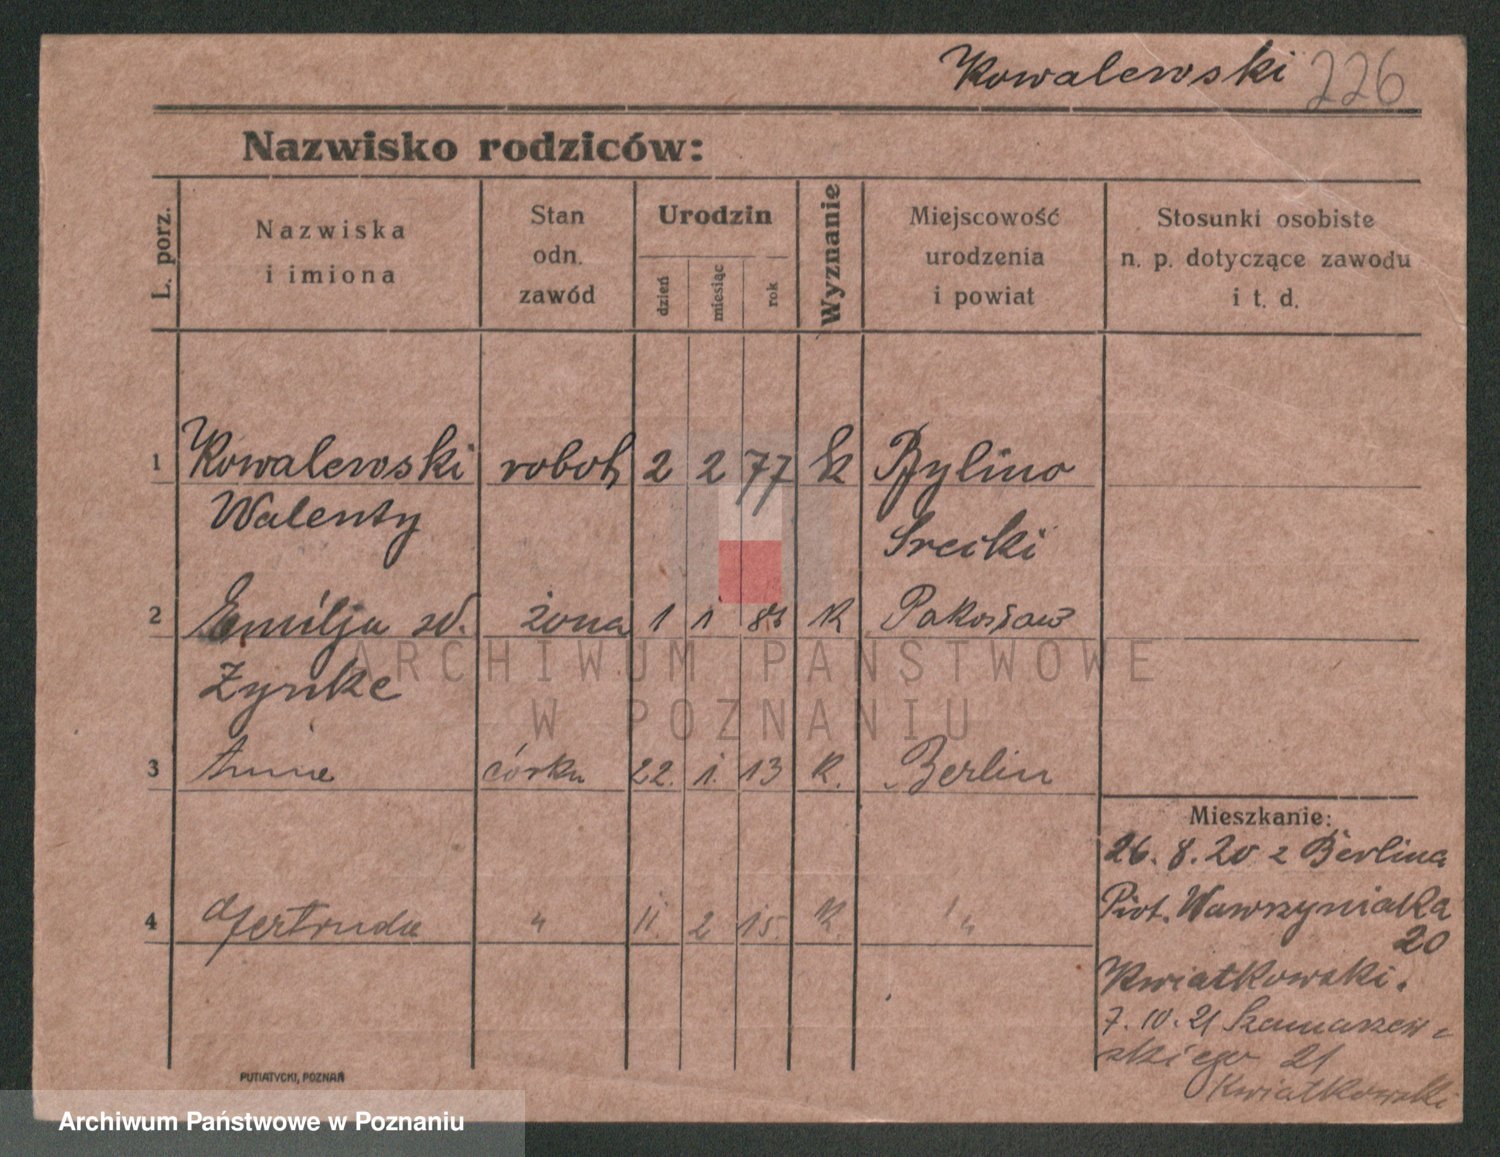 Kowalewski 226
Nazwisko rodziców:
L. porz.
Nazwiska
i imiona
Stan
odn.
zawód
Urodzin
dzień
miesiąc
rok
Wyznanie
Miejscowość
urodzenia
i powiat
Stosunki osobiste
n. p. dotyczące zawodu
i t. d.
1 Kowalewski robot. 2 2 77 k Bylino
Walenty Srecki
2 Emilja zd. żona 1 1 83 k Pakosław
Zynke
3 Anna córka 22. 1. 13 k. Berlin
4 Gertruda " 11. 2 15. k. "
Mieszkanie:
26. 8. 20 z Berlina
Piot. Wawrzyniaka
20
Kwiatkowski.
7. 10. 21 Szamarzew-
skiego 21
Kwiatkowski
PUTIATYCKI, POZNAŃ
ARCHIWUM PAŃSTWOWE
W POZNANIU
Archiwum Państwowe w Poznaniu